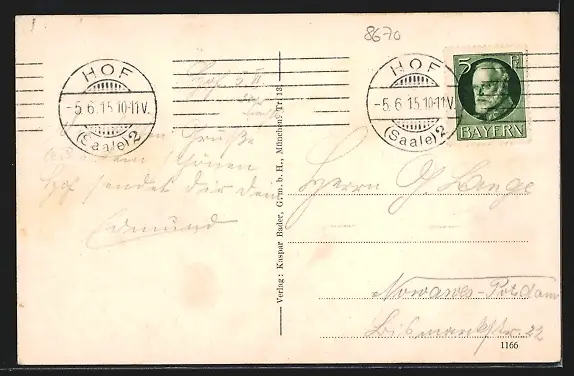 8670
HOF
-5.6.15.10-11V.
(Saale) 2
HOF
-5.6.15.10-11V.
(Saale) 2
5 Pf
BAYERN
Hof
Grüße
schönen
Hof sendet dir dein
Edmund
Verlag: Kaspar Bader, G. m. b. H., München. Tr 13
Herrn Lange
Nowawes-Potsdam
Bismarckstr. 22
1166